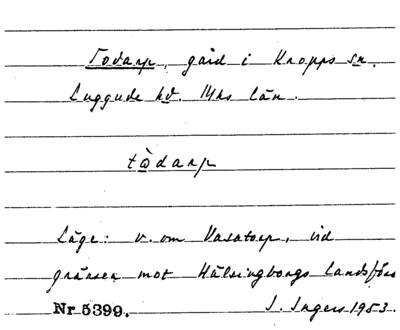 Todarp, gård i Kropps sn.
Luggude hd. Mhs län.
tòdarp
Läge: v. om Vasatorp, vid
gränsen mot Hälsingborgs landsförs
Nr 5399. I. Ingers 1953.